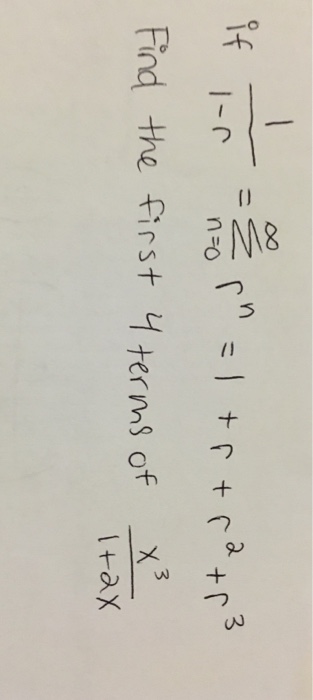 if 1/(1-r) = ∞ Σ n=0 rⁿ = 1 + r + r² + r³
Find the first 4 terms of x³/(1+2x)